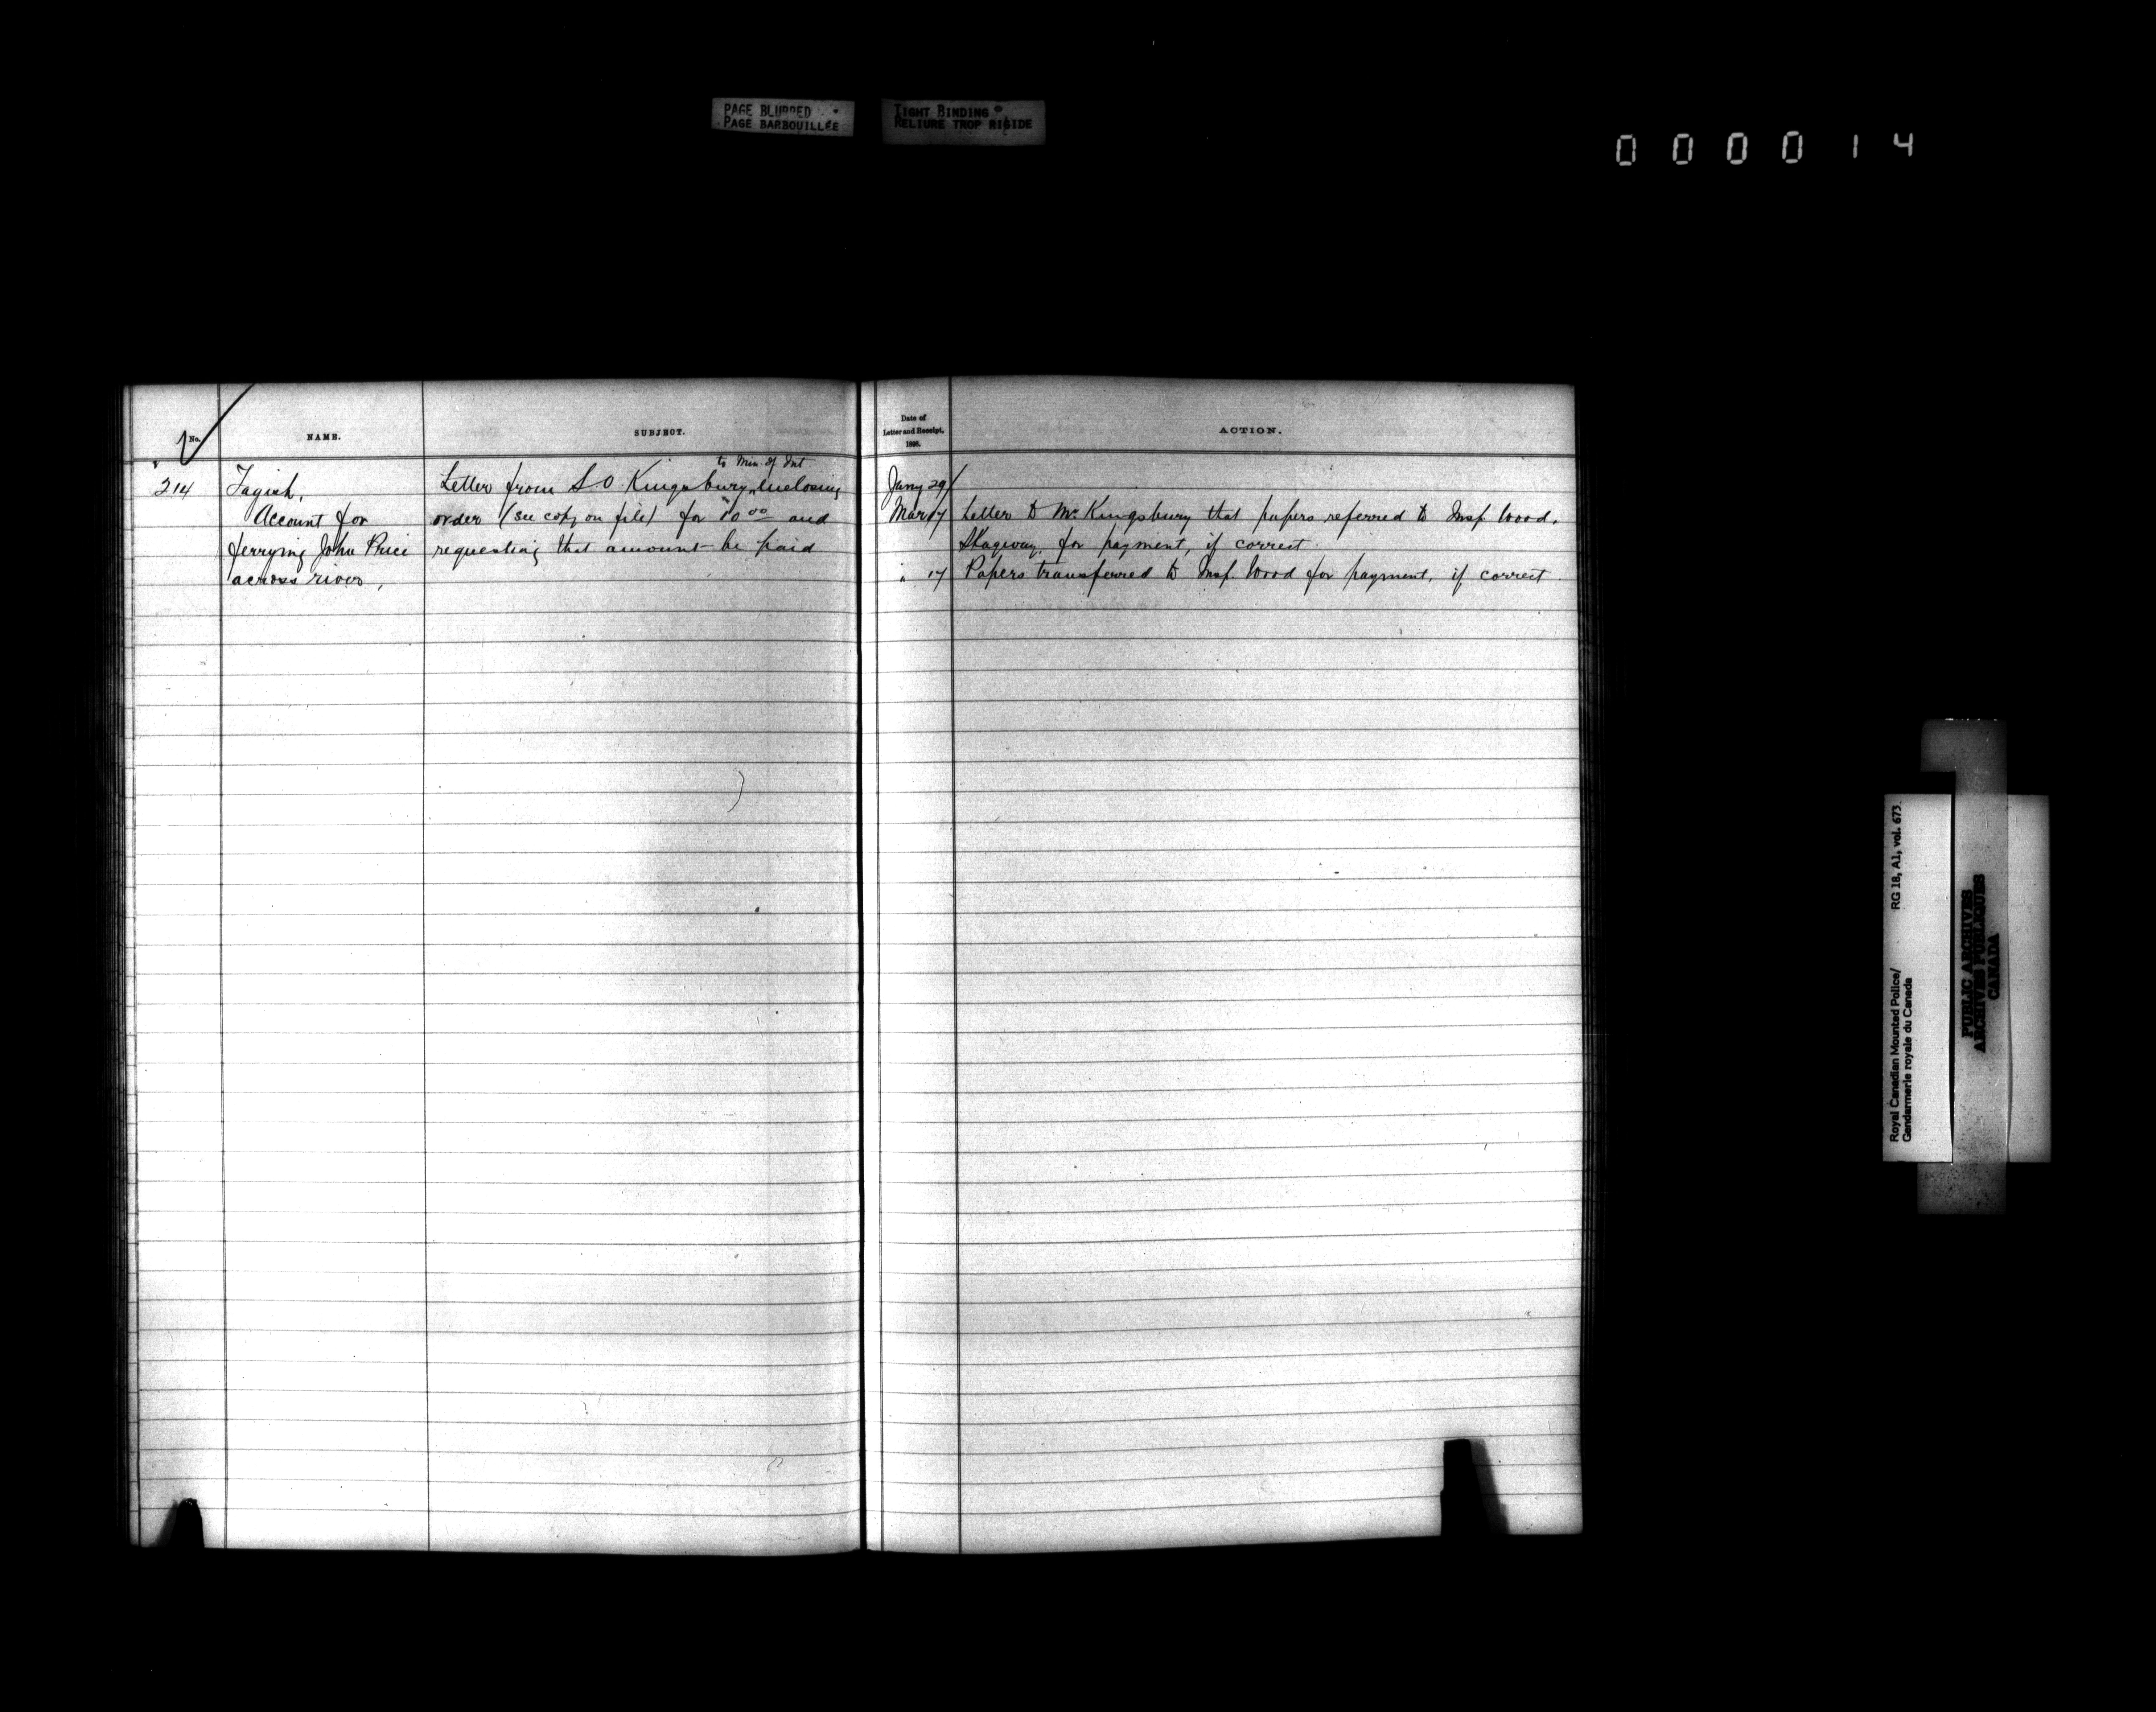 PAGE BLURRED
PAGE BARBOUILLÉE
TIGHT BINDING
RELIURE TROP RIGIDE
000014
No.
NAME.
SUBJECT.
Date of
Letter and Receipt,
1898.
ACTION.
to Min. of Int
214
Tagish,
Account for
ferrying John Price
across river,
Letter from S O Kingsbury, Inclosing
order (see copy on file) for 10 00 and
requesting that amount be paid
Jany 29/
Mar 17 Letter to Mr Kingsbury that papers referred to Insp. Wood,
Skagway, for payment, if correct.
" 17 Papers transferred to Insp. Wood for payment, if correct.
Royal Canadian Mounted Police/ RG 18, A1, vol. 673.
Gendarmerie royale du Canada
PUBLIC ARCHIVES
ARCHIVES PUBLIQUES
CANADA